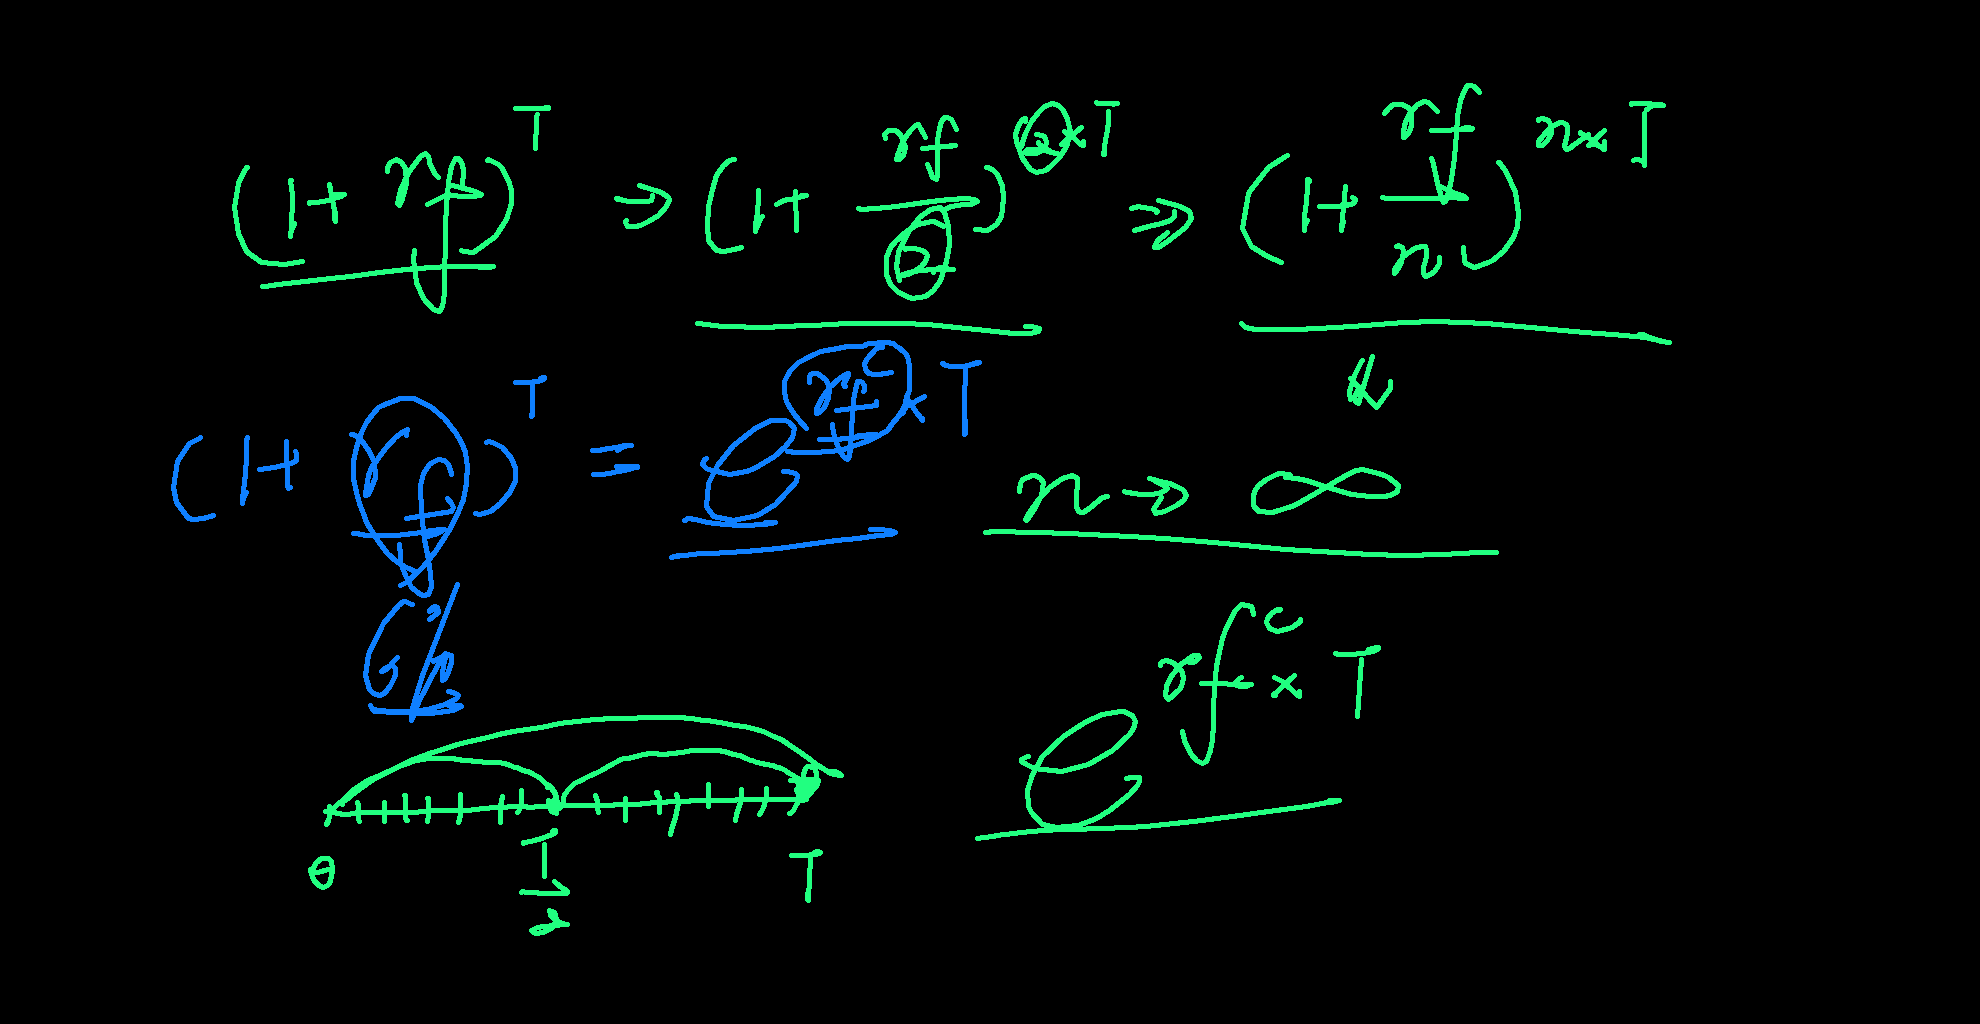 (1+ rf)^T ⇒ (1+ rf/2)^2×T ⇒ (1+ rf/n)^n×T
(1+ rf)^T = e^rf^c×T
n → ∞
6%
e^rf^c × T
0 T/2 T